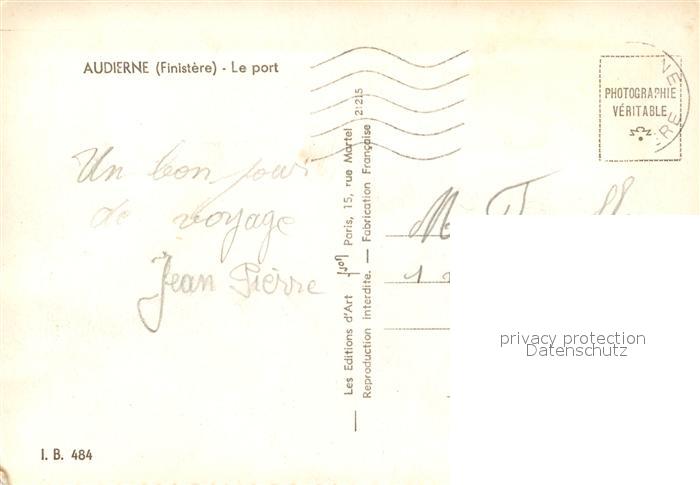 AUDIERNE (Finistère) - Le port
Un bon jour
de voyage
Jean Pierre
I. B. 484
Les Editions d'Art Yvon Paris, 15, rue Martel 21215
Reproduction interdite. — Fabrication Française
PHOTOGRAPHIE
VÉRITABLE
NE
RE
M
1
privacy protection
Datenschutz